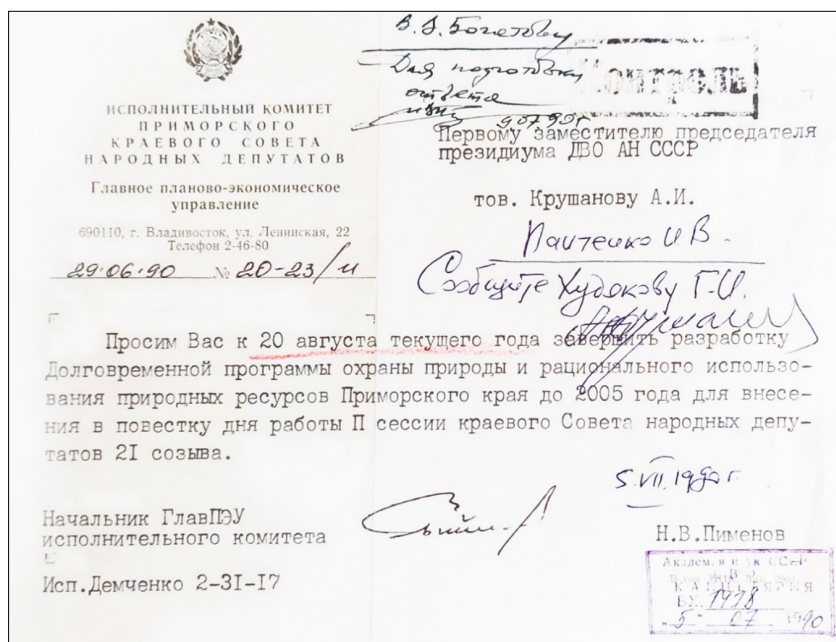 ИСПОЛНИТЕЛЬНЫЙ КОМИТЕТ
ПРИМОРСКОГО
КРАЕВОГО СОВЕТА
НАРОДНЫХ ДЕПУТАТОВ
Главное планово-экономическое
управление
690110, г. Владивосток, ул. Ленинская, 22
Телефон 2-46-80
29.06.90 № 20-23/11
В. В. Богатову
Для подготовки
ответа
9.07.90г
Контроль
Первому заместителю председателя
президиума ДВО АН СССР
тов. Крушанову А.И.
И.В.
Сообщите Худякову Г.И.
Просим Вас к 20 августа текущего года завершить разработку
Долговременной программы охраны природы и рационального использо-
вания природных ресурсов Приморского края до 2005 года для внесе-
ния в повестку дня работы П сессии краевого Совета народных депу-
татов 2I созыва.
5.VII.1990г.
Начальник ГлавПЭУ
исполнительного комитета
Н.В.Пименов
Исп.Демченко 2-3I-I7
Академия наук СССР
КАНЦЕЛЯРИЯ
ВХ. 1978
"5" 07 1990